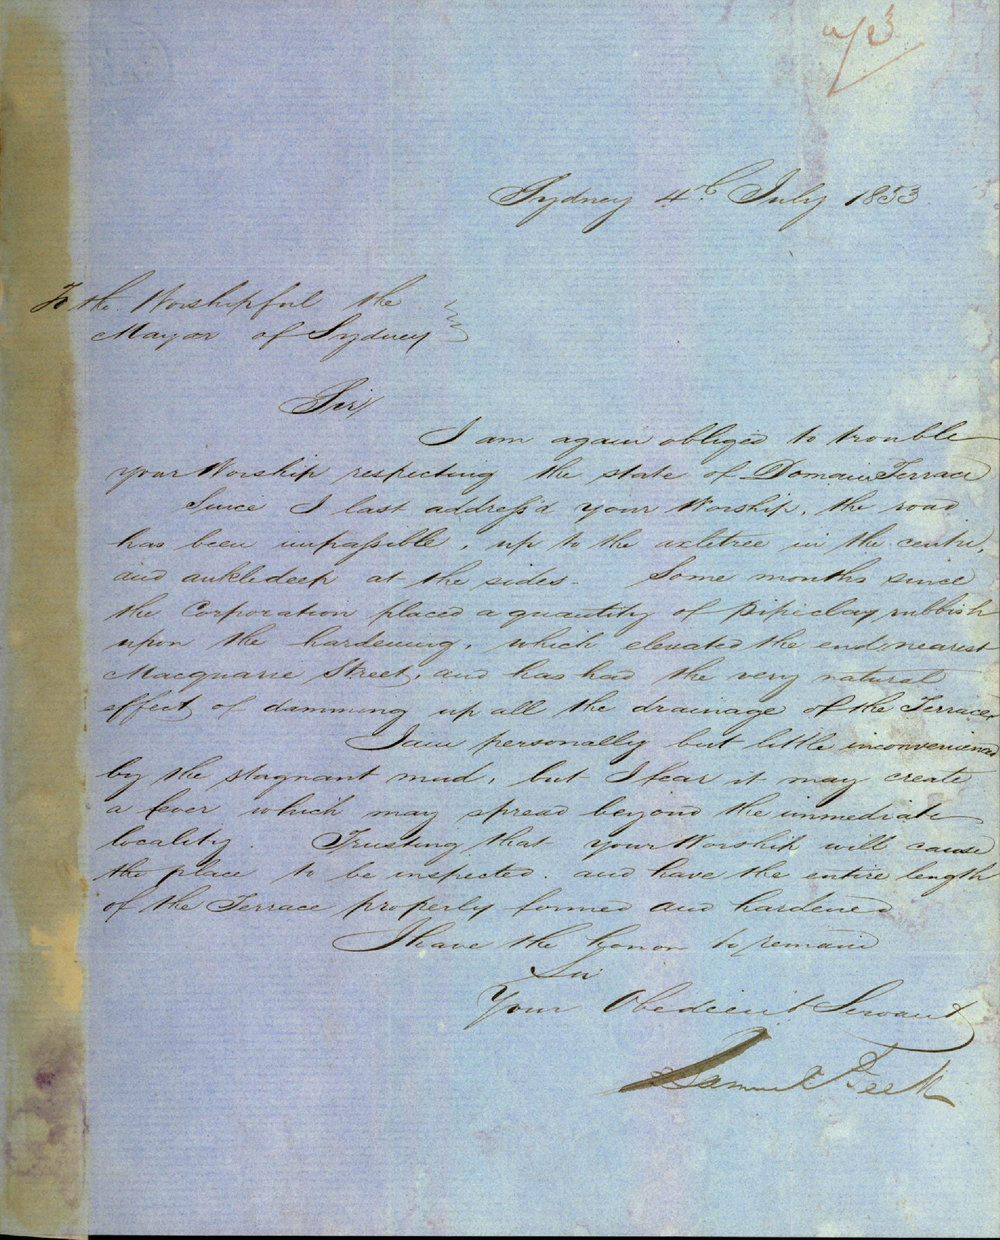 Sydney 4th July 1853
To the Worshipful the
Mayor of Sydney
Sir/
I am again obliged to trouble
your Worship respecting the state of Domain Terrace
Since I last address'd your Worship, the road
has been impassible, up to the axletree in the centre,
and ankledeep at the sides - Some months since
the Corporation placed a quantity of pipeclay rubbish
upon the hardening, which elevated the end nearest
Macquarie Street, and has had the very natural
effect of damming up all the drainage of the Terrace.
I am personally but little inconvenienced
by the stagnant mud, but I fear it may create
a fever which may spread beyond the immediate
locality. Trusting that your Worship will cause
the place to be inspected. and have the entire length
of the Terrace properly formed and hardened
I have the honor to remain
Sir
Your Obedient Servant
Samuel Peek